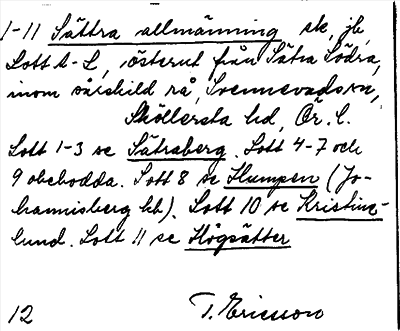 1-11 Sättra allmänning sk, jb,
Lott A-L, österut från Sätra Södra,
inom särskild rå, Svennevads sn,
Sköllersta hd, Ör. l.
Lott 1-3 se Sätraberg. Lott 4-7 och
9 obebodda. Lott 8 se Klumpen (Jo-
hannisberg kb). Lott 10 se Kristine-
lund. Lott 11 se Högsätter
12 T. Ericsson